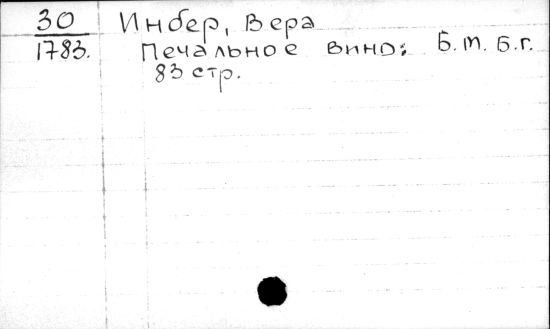 30 Инбер, Вера
1783. Печальное вино: Б.т. Б.г.
83 стр.